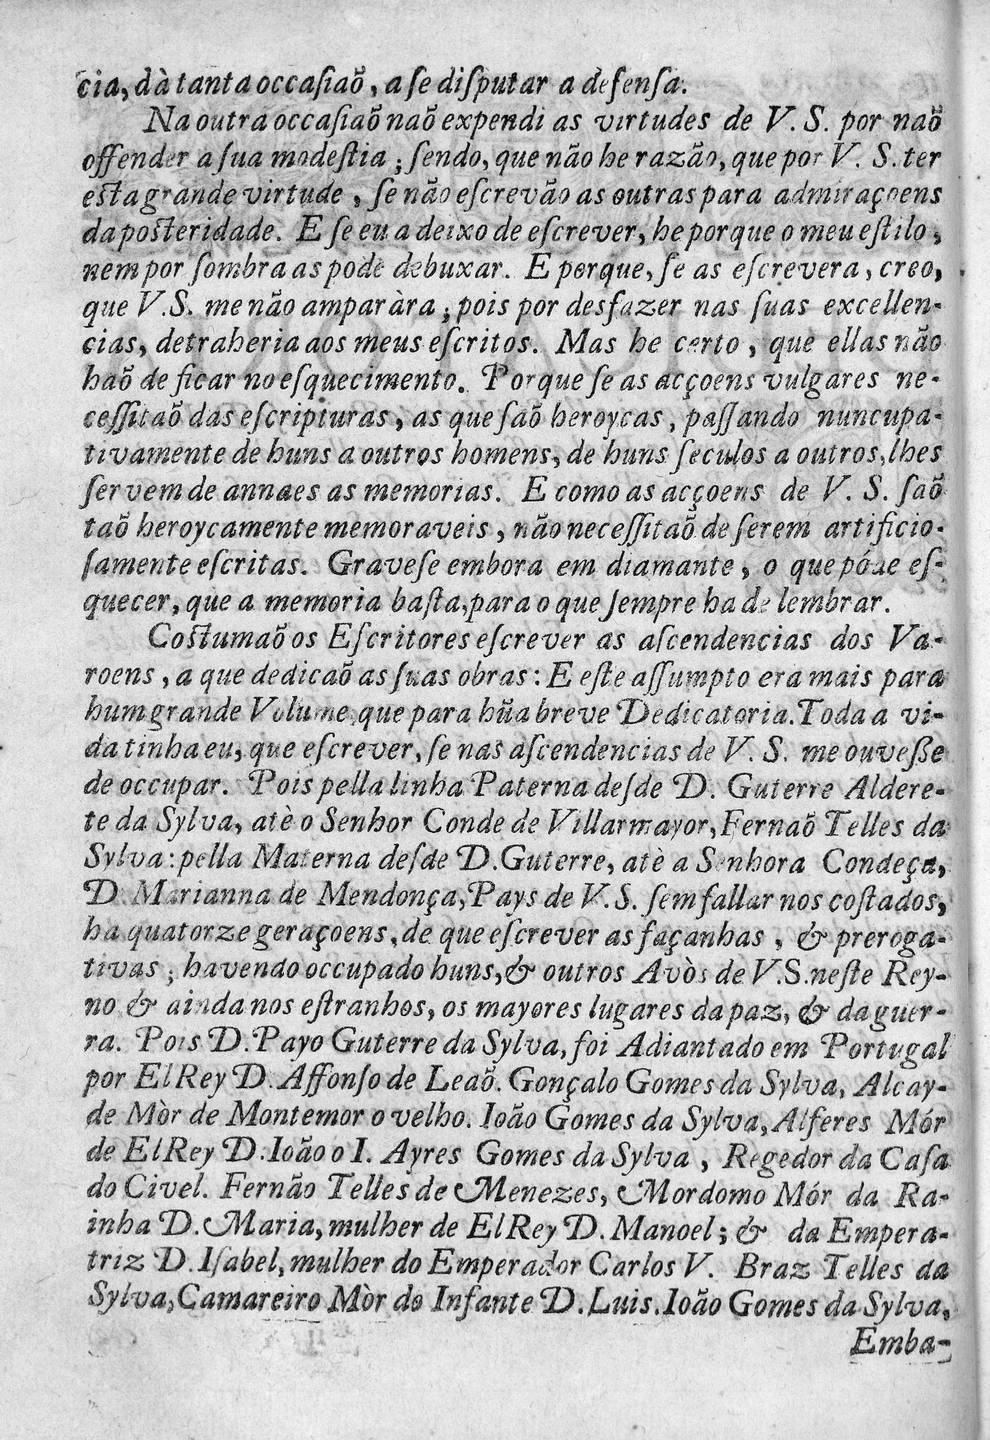 cia, dà tanta occaſiaõ, a ſe diſputar a defenſa.
Na outra occaſiaõ naõ expendi as virtudes de V. S. por naõ
offender a ſua modeſtia; ſendo, que não he razão, que por V. S. ter
eſta grande virtude, ſe não eſcrevão as outras para admiraçoens
da poſteridade. E ſe eu a deixo de eſcrever, he porque o meu eſtilo,
nem por ſombra as pode debuxar. E porque, ſe as eſcrevera, creo,
que V.S. me não amparàra; pois por desfazer nas ſuas excellen-
cias, detraheria aos meus eſcritos. Mas he certo, que ellas não
haõ de ficar no eſquecimento. Porque ſe as acçoens vulgares ne-
ceſſitaõ das eſcripturas, as que ſaõ heroycas, paſſando nuncupa-
tivamente de huns a outros homens, de huns ſeculos a outros, lhes
ſervem de annaes as memorias. E como as acçoens de V. S. ſaõ
taõ heroycamente memoraveis, não neceſſitaõ de ſerem artificio-
ſamente eſcritas. Graveſe embora em diamante, o que póde eſ-
quecer, que a memoria baſta, para o que ſempre ha de lembrar.
Coſtumaõ os Eſcritores eſcrever as aſcendencias dos Va-
roens, a que dedicaõ as ſuas obras: E eſte aſſumpto era mais para
hum grande Volume, que para hũa breve Dedicatoria. Toda a vi-
da tinha eu, que eſcrever, ſe nas aſcendencias de V. S. me ouveſſe
de occupar. Pois pella linha Paterna deſde D. Guterre Aldere-
te da Sylva, atè o Senhor Conde de Villarmayor, Fernaõ Telles da
Sylva: pella Materna deſde D. Guterre, atè a Senhora Condeça,
D. Marianna de Mendonça, Pays de V.S. ſem fallar nos coſtados,
ha quatorze geraçoens, de que eſcrever as façanhas, & preroga-
tivas; havendo occupado huns, & outros Avòs de V.S. neſte Rey-
no & ainda nos eſtranhos, os mayores lugares da paz, & da guer-
ra. Pois D. Payo Guterre da Sylva, foi Adiantado em Portugal
por ElRey D. Affonſo de Leaõ. Gonçalo Gomes da Sylva, Alcay-
de Mòr de Montemor o velho. Ioão Gomes da Sylva, Alferes Mór
de ElRey D. Ioão o I. Ayres Gomes da Sylva, Regedor da Caſa
do Civel. Fernão Telles de Menezes, Mordomo Mór da Ra-
inha D. Maria, mulher de ElRey D. Manoel; & da Empera-
triz D. Iſabel, mulher do Emperador Carlos V. Braz Telles da
Sylva, Camareiro Mòr do Infante D. Luis. Ioão Gomes da Sylva,
Emba-